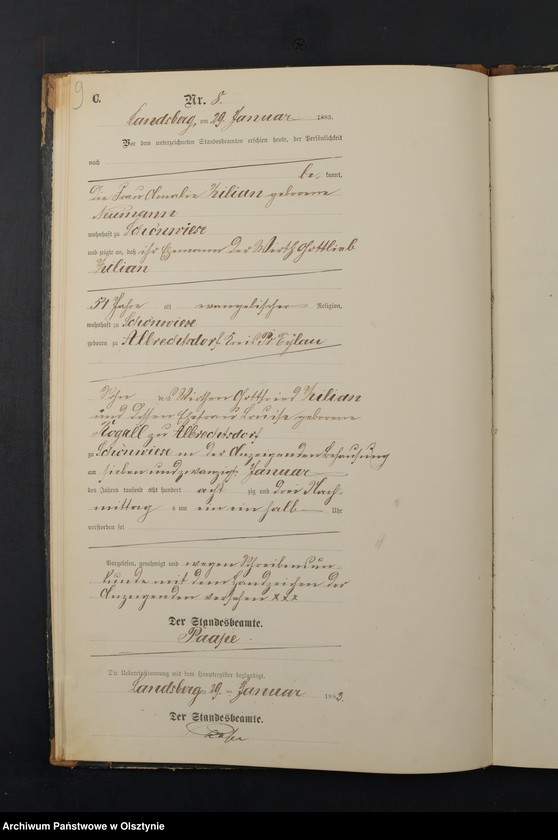 9
C.
Nr. 8.
Landsberg, am 29. Januar 1883.
Vor dem unterzeichneten Standesbeamten erschien heute, der Persönlichkeit
nach
be kannt,
die Frau Amalie Kilian geborene
Neumann
wohnhaft zu Schönwiese
und zeigte an, daß ihr Ehemann der Wirth Gottlieb
Kilian
51 Jahre alt evangelischer Religion,
wohnhaft zu Schönwiese
geboren zu Albrechtsdorf Kreis Pr Eylau
Sohn des Wirthen Gottfried Kilian
und dessen Ehefrau Louise geborene
Rogall zu Albrechtsdorf
zu Schönwiese in der Anzeigenden Behausung
am sieben und zwanzigs. Januar
des Jahres tausend acht hundert acht zig und drei Nach-
mittag s um ein ein halb Uhr
verstorben sei
Vorgelesen, genehmigt und wegen Schreibensun-
kunde mit dem Handzeichen der
Anzeigenden versehen xxx
Der Standesbeamte.
Paape.
Die Uebereinstimmung mit dem Hauptregister beglaubigt.
Landsberg 29. Januar 1883.
Der Standesbeamte.
Paape
Archiwum Państwowe w Olsztynie